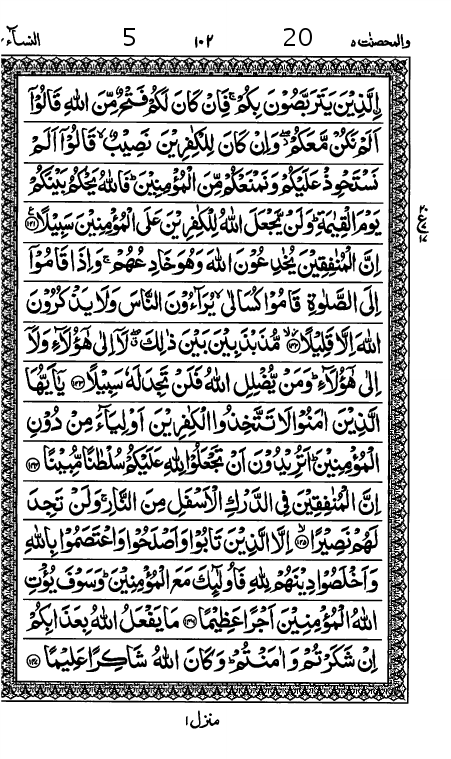 والمحصنت ۵ 20 ۱۰۲ 5 النسآء
اِۨلَّذِيْنَ يَتَرَبَّصُوْنَ بِكُمْ ۚ فَاِنْ كَانَ لَكُمْ فَتْحٌ مِّنَ اللّٰهِ قَالُوْۤا
اَلَمْ نَكُنْ مَّعَكُمْ ۖ وَاِنْ كَانَ لِلْكٰفِرِيْنَ نَصِيْبٌ ۙ قَالُوْۤا اَلَمْ
نَسْتَحْوِذْ عَلَيْكُمْ وَنَمْنَعْكُمْ مِّنَ الْمُؤْمِنِيْنَ ؕ فَاللّٰهُ يَحْكُمُ بَيْنَكُمْ
يَوْمَ الْقِيٰمَةِ ؕ وَلَنْ يَّجْعَلَ اللّٰهُ لِلْكٰفِرِيْنَ عَلَى الْمُؤْمِنِيْنَ سَبِيْلًا ۟﴿۱۴۱﴾
اِنَّ الْمُنٰفِقِيْنَ يُخٰدِعُوْنَ اللّٰهَ وَهُوَ خَادِعُهُمْ ۚ وَاِذَا قَامُوْۤا
اِلَى الصَّلٰوةِ قَامُوْا كُسَالٰى ۙ يُرَآءُوْنَ النَّاسَ وَلَا يَذْكُرُوْنَ
اللّٰهَ اِلَّا قَلِيْلًا ﴿۱۴۲﴾ مُّذَبْذَبِيْنَ بَيْنَ ذٰلِكَ ۖ لَاۤ اِلٰى هٰۤؤُلَآءِ وَلَاۤ
اِلٰى هٰۤؤُلَآءِ ؕ وَمَنْ يُّضْلِلِ اللّٰهُ فَلَنْ تَجِدَ لَهٗ سَبِيْلًا ﴿۱۴۳﴾ يٰۤاَيُّهَا
الَّذِيْنَ اٰمَنُوْا لَا تَتَّخِذُوا الْكٰفِرِيْنَ اَوْلِيَآءَ مِنْ دُوْنِ
الْمُؤْمِنِيْنَ ؕ اَتُرِيْدُوْنَ اَنْ تَجْعَلُوْا لِلّٰهِ عَلَيْكُمْ سُلْطٰنًا مُّبِيْنًا ﴿۱۴۴﴾
اِنَّ الْمُنٰفِقِيْنَ فِى الدَّرْكِ الْاَسْفَلِ مِنَ النَّارِ ۚ وَلَنْ تَجِدَ
لَهُمْ نَصِيْرًا ﴿۱۴۵﴾ اِلَّا الَّذِيْنَ تَابُوْا وَاَصْلَحُوْا وَاعْتَصَمُوْا بِاللّٰهِ
وَاَخْلَصُوْا دِيْنَهُمْ لِلّٰهِ فَاُولٰٓئِكَ مَعَ الْمُؤْمِنِيْنَ ؕ وَسَوْفَ يُؤْتِ
اللّٰهُ الْمُؤْمِنِيْنَ اَجْرًا عَظِيْمًا ﴿۱۴۶﴾ مَا يَفْعَلُ اللّٰهُ بِعَذَابِكُمْ
اِنْ شَكَرْتُمْ وَاٰمَنْتُمْ ؕ وَكَانَ اللّٰهُ شَاكِرًا عَلِيْمًا ﴿۱۴۷﴾
منزل ۱